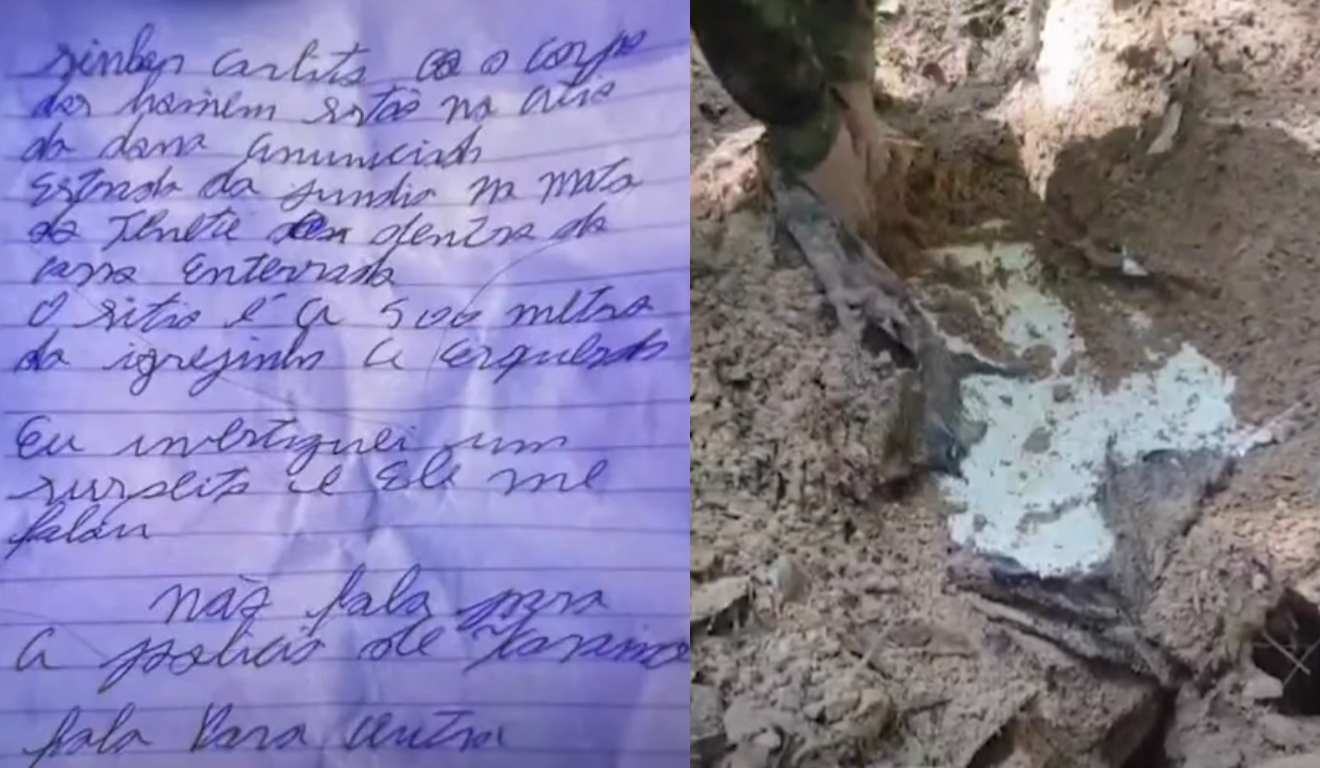 sinhor carlito as o corpo
dos homem estão no sitio
da dona anunciada
Estrada da jundia na mata
da Tenete dentro da
casa Enterrado
O sitio é a 500 metro
da igrejinha a esquerda
Eu investiguei um
surpeito e Ele me
falou
não fala para
A policia de
fala Para outra